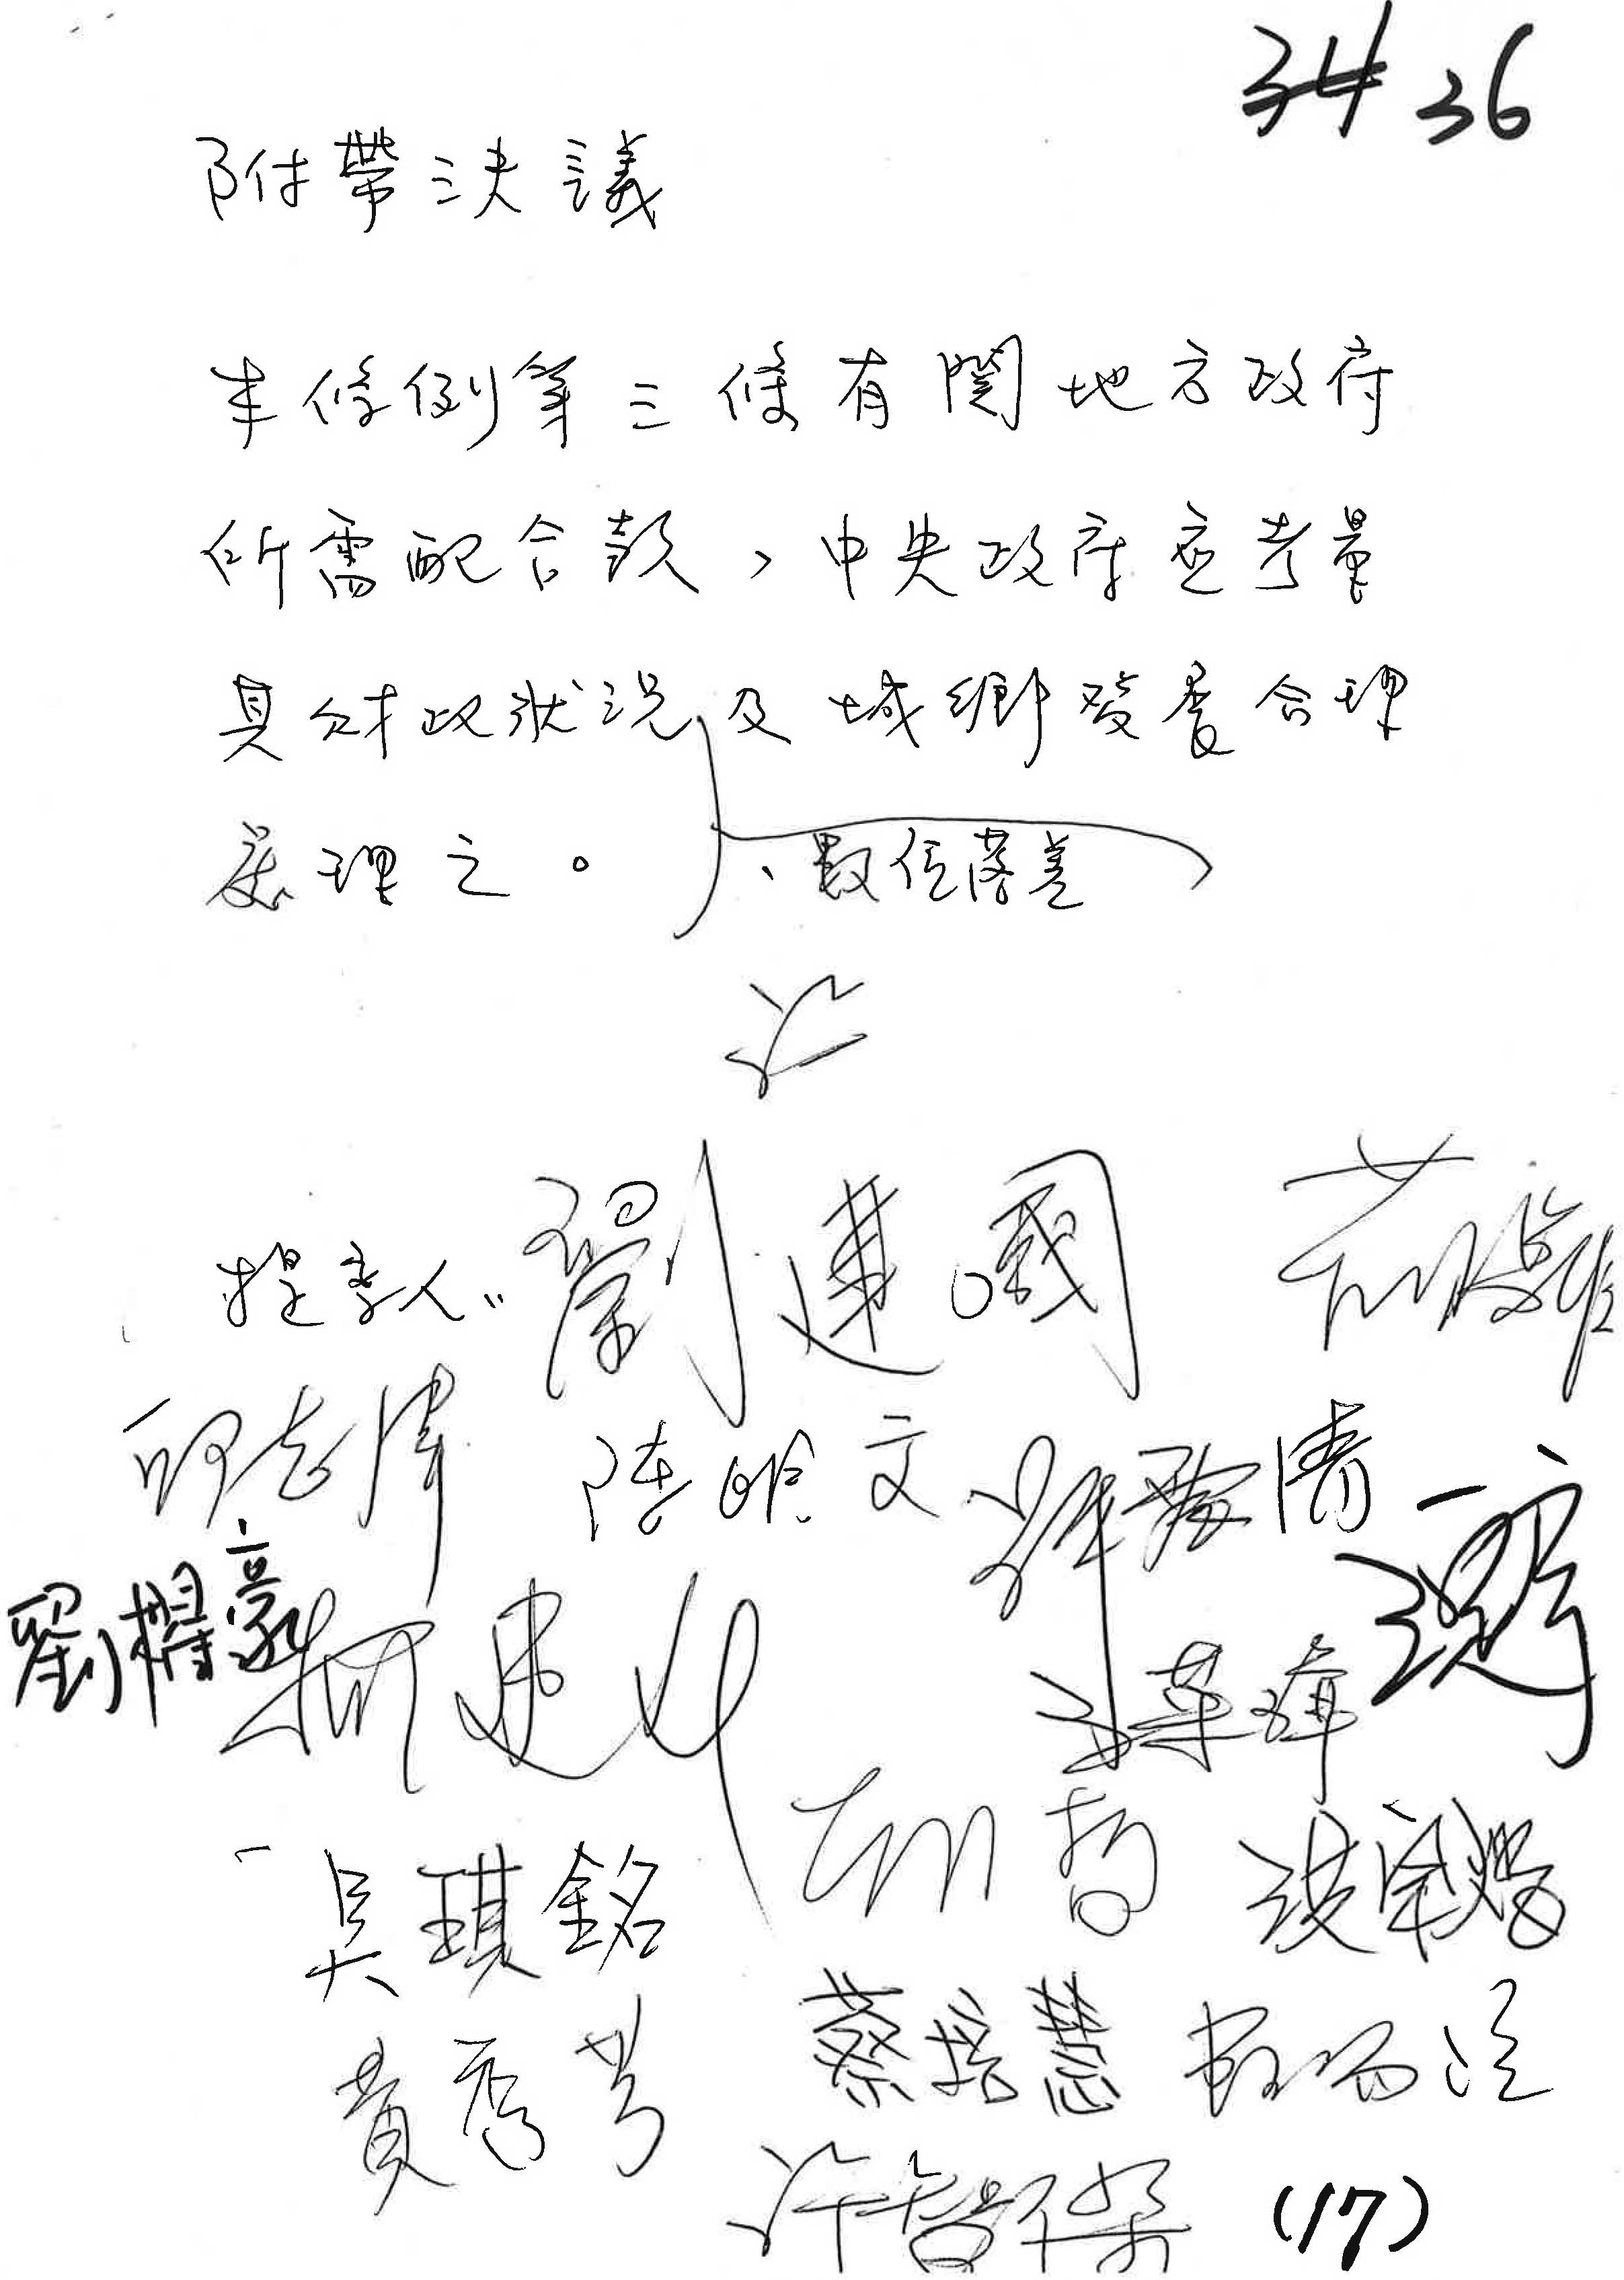 34 36
附帶決議
本條例第三條有關地方政府
所需配合款，中央政府應考量
其財政狀況及城鄉發展合理
處理之。
、數位落差
提案人：劉建國
邱志偉 陳明文
劉櫂豪 柯建
吳琪銘 洪宗熠
黃秀芳 蔡培慧
許智傑 (17)